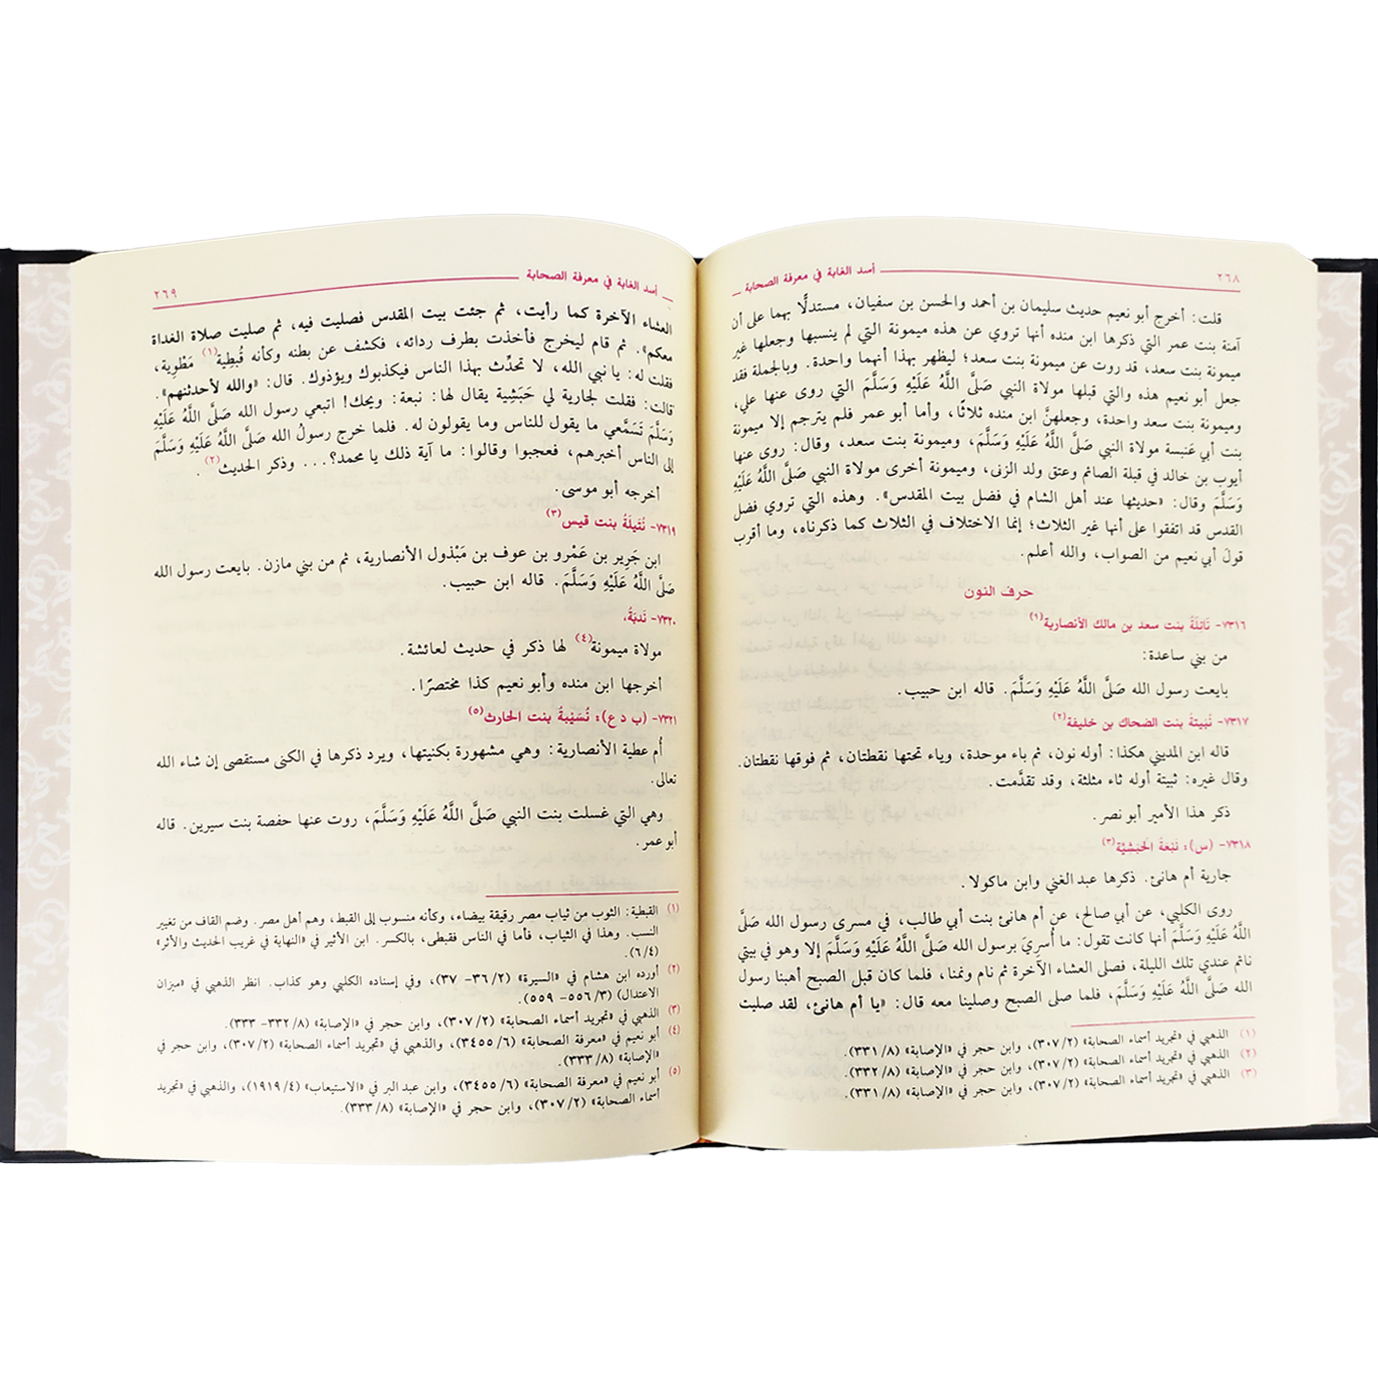 ٢٦٨
أسد الغابة في معرفة الصحابة
قلت: أخرج أبو نعيم حديث سليمان بن أحمد والحسن بن سفيان، مستدلًّا بهما على أن
آمنة بنت عمر التي ذكرها ابن منده أنها تروي عن هذه ميمونة التي لم ينسبها وجعلها غير
ميمونة بنت سعد، قد روت عن ميمونة بنت سعد؛ ليظهر بهذا أنهما واحدة. وبالجملة فقد
جعل أبو نعيم هذه والتي قبلها مولاة النبي صَلَّى اللَّهُ عَلَيْهِ وَسَلَّمَ التي روى عنها علي،
وميمونة بنت سعد واحدة، وجعلهنَّ ابن منده ثلاثًا، وأما أبو عمر فلم يترجم إلا ميمونة
بنت أبي عَنبسة مولاة النبي صَلَّى اللَّهُ عَلَيْهِ وَسَلَّمَ، وميمونة بنت سعد، وقال: روى عنها
أيوب بن خالد في قبلة الصائم وعتق ولد الزنى، وميمونة أخرى مولاة النبي صَلَّى اللَّهُ عَلَيْهِ
وَسَلَّمَ وقال: «حديثها عند أهل الشام في فضل بيت المقدس». وهذه التي تروي فضل
القدس قد اتفقوا على أنها غير الثلاث؛ إنما الاختلاف في الثلاث كما ذكرناه، وما أقرب
قولَ أبي نعيم من الصواب، والله أعلم.
حرف النون
٧٣١٦- نَائِلَةُ بنت سعد بن مالك الأنصارية(١)
من بني ساعدة:
بايعت رسول الله صَلَّى اللَّهُ عَلَيْهِ وَسَلَّمَ. قاله ابن حبيب.
٧٣١٧- نُبَيتةُ بنت الضحاك بن خليفة(٢)
قاله ابن المديني هكذا: أوله نون، ثم باء موحدة، وياء تحتها نقطتان، ثم فوقها نقطتان.
وقال غيره: ثبيتة أوله ثاء مثلثة، وقد تقدَّمت.
ذكر هذا الأمير أبو نصر.
٧٣١٨- (س): نَبْعَةُ الحَبَشيَّة(٣)
جارية أم هانئ. ذكرها عبد الغني وابن ماكولا.
روى الكلبي، عن أبي صالح، عن أم هانئ بنت أبي طالب، في مسرى رسول الله صَلَّى
اللَّهُ عَلَيْهِ وَسَلَّمَ أنها كانت تقول: ما أُسرِيَ برسول الله صَلَّى اللَّهُ عَلَيْهِ وَسَلَّمَ إلا وهو في بيتي
نائم عندي تلك الليلة، فصلى العشاء الآخرة ثم نام ونمنا، فلما كان قبل الصبح أهبنا رسول
الله صَلَّى اللَّهُ عَلَيْهِ وَسَلَّمَ، فلما صلى الصبح وصلينا معه قال: «يا أم هانئ، لقد صليت
(١) الذهبي في «تجريد أسماء الصحابة» (٣٠٧/٢)، وابن حجر في «الإصابة» (٣٣١/٨).
(٢) الذهبي في «تجريد أسماء الصحابة» (٣٠٧/٢)، وابن حجر في «الإصابة» (٣٣٢/٨).
(٣) الذهبي في «تجريد أسماء الصحابة» (٣٠٧/٢)، وابن حجر في «الإصابة» (٣٣١/٨).
أسد الغابة في معرفة الصحابة
٢٦٩
العشاء الآخرة كما رأيت، ثم جئت بيت المقدس فصليت فيه، ثم صليت صلاة الغداة
معكم». ثم قام ليخرج فأخذت بطرف ردائه، فكشف عن بطنه وكأنه قُبطِية(١) مَطْوِية،
فقلت له: يا نبي الله، لا تحدِّث بهذا الناس فيكذبوك ويؤذوك. قال: «والله لأحدثنهم».
قالت: فقلت لجارية لي حَبَشِية يقال لها: نبعة: ويحك! اتبعي رسول الله صَلَّى اللَّهُ عَلَيْهِ
وَسَلَّمَ تَسَمَّعي ما يقول للناس وما يقولون له. فلما خرج رسولُ الله صَلَّى اللَّهُ عَلَيْهِ وَسَلَّمَ
إلى الناس أخبرهم، فعجبوا وقالوا: ما آية ذلك يا محمد؟... وذكر الحديث(٢).
أخرجه أبو موسى.
٧٣١٩- نُفَيلَةُ بنت قيس(٣)
ابن جَرِير بن عَمْرو بن عوف بن مَبْذول الأنصارية، ثم من بني مازن. بايعت رسول الله
صَلَّى اللَّهُ عَلَيْهِ وَسَلَّمَ. قاله ابن حبيب.
٧٣٢٠- نَدبَةُ،
مولاة ميمونة(٤) لها ذكر في حديث لعائشة.
أخرجها ابن منده وأبو نعيم كذا مختصرًا.
٧٣٢١- (ب د ع): نُسَيْبةُ بنت الحارث(٥)
أُم عطية الأنصارية: وهي مشهورة بكنيتها، ويرد ذكرها في الكنى مستقصى إن شاء الله
تعالى.
وهي التي غسلت بنت النبي صَلَّى اللَّهُ عَلَيْهِ وَسَلَّمَ، روت عنها حفصة بنت سيرين. قاله
أبو عمر.
(١) القبطية: الثوب من ثياب مصر رقيقة بيضاء، وكأنه منسوب إلى القبط، وهم أهل مصر. وضم القاف من تغيير
النسب. وهذا في الثياب، فأما في الناس فقبطى، بالكسر. ابن الأثير في «النهاية في غريب الحديث والأثر»
(٦/٤).
(٢) أورده ابن هشام في «السيرة» (٣٦/٢- ٣٧)، وفي إسناده الكلبي وهو كذاب. انظر الذهبي في «ميزان
الاعتدال» (٥٥٦/٣- ٥٥٩).
(٣) الذهبي في «تجريد أسماء الصحابة» (٣٠٧/٢)، وابن حجر في «الإصابة» (٣٣٢/٨- ٣٣٣).
(٤) أبو نعيم في «معرفة الصحابة» (٣٤٥٥/٦)، والذهبي في «تجريد أسماء الصحابة» (٣٠٧/٢)، وابن حجر في
«الإصابة» (٣٣٣/٨).
(٥) أبو نعيم في «معرفة الصحابة» (٣٤٥٥/٦)، وابن عبد البر في «الاستيعاب» (١٩١٩/٤)، والذهبي في «تجريد
أسماء الصحابة» (٣٠٧/٢)، وابن حجر في «الإصابة» (٣٣٣/٨).